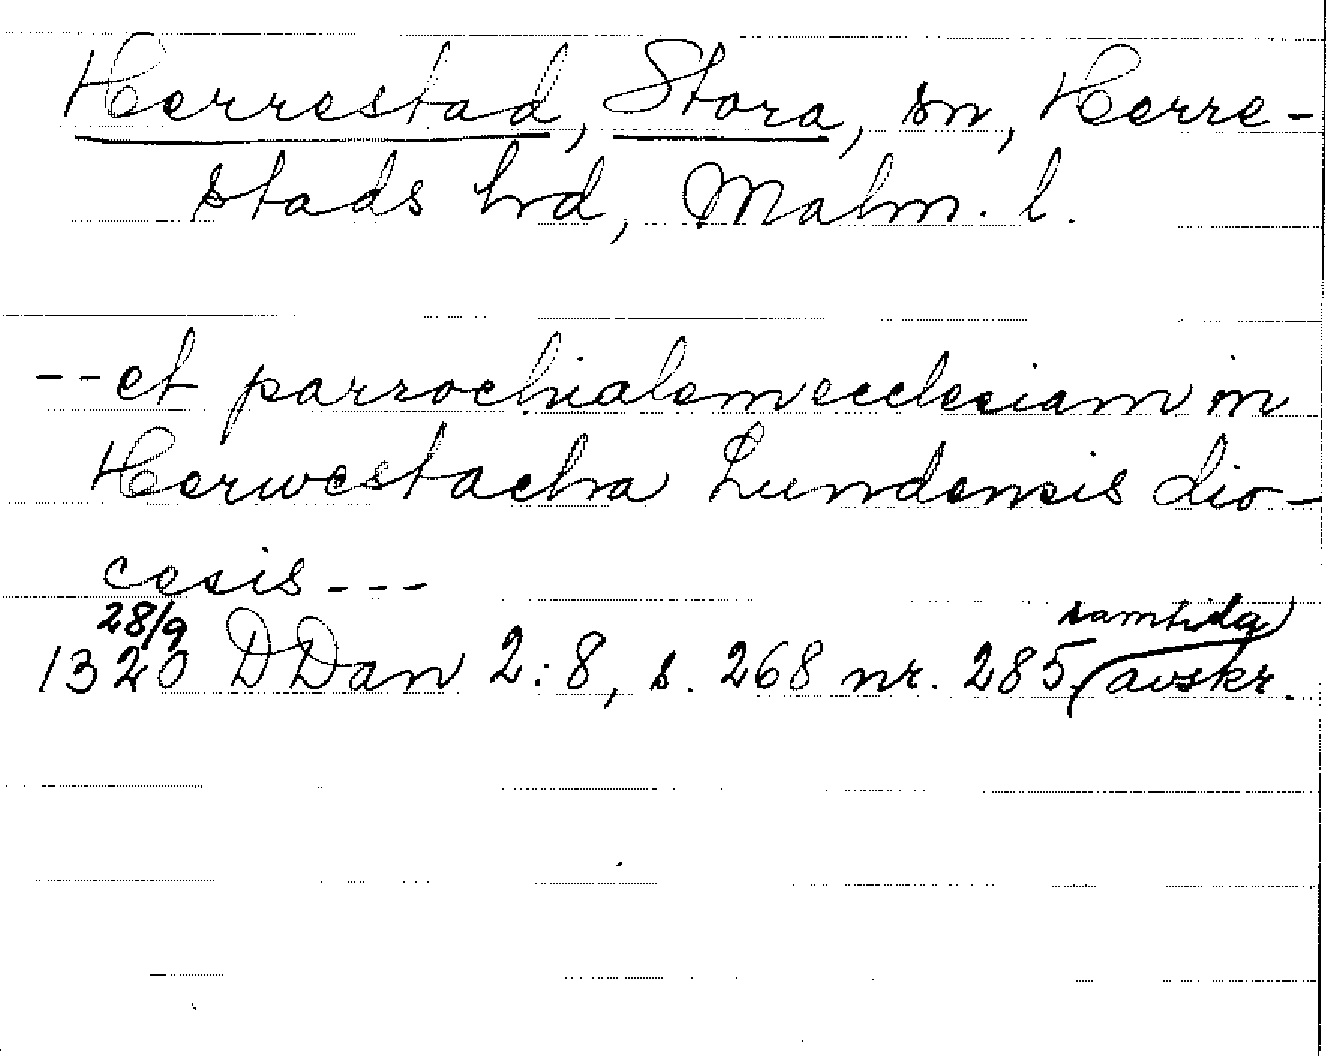 Herrestad, Stora, sn, Herre-
stads hrd, Malm. l.
--et parrochialem ecclesiam in
Herwestacha Lundensis dio-
cesis---
28/9 samtida)
1320 DDan 2:8, s. 268 nr. 285 (avskr.